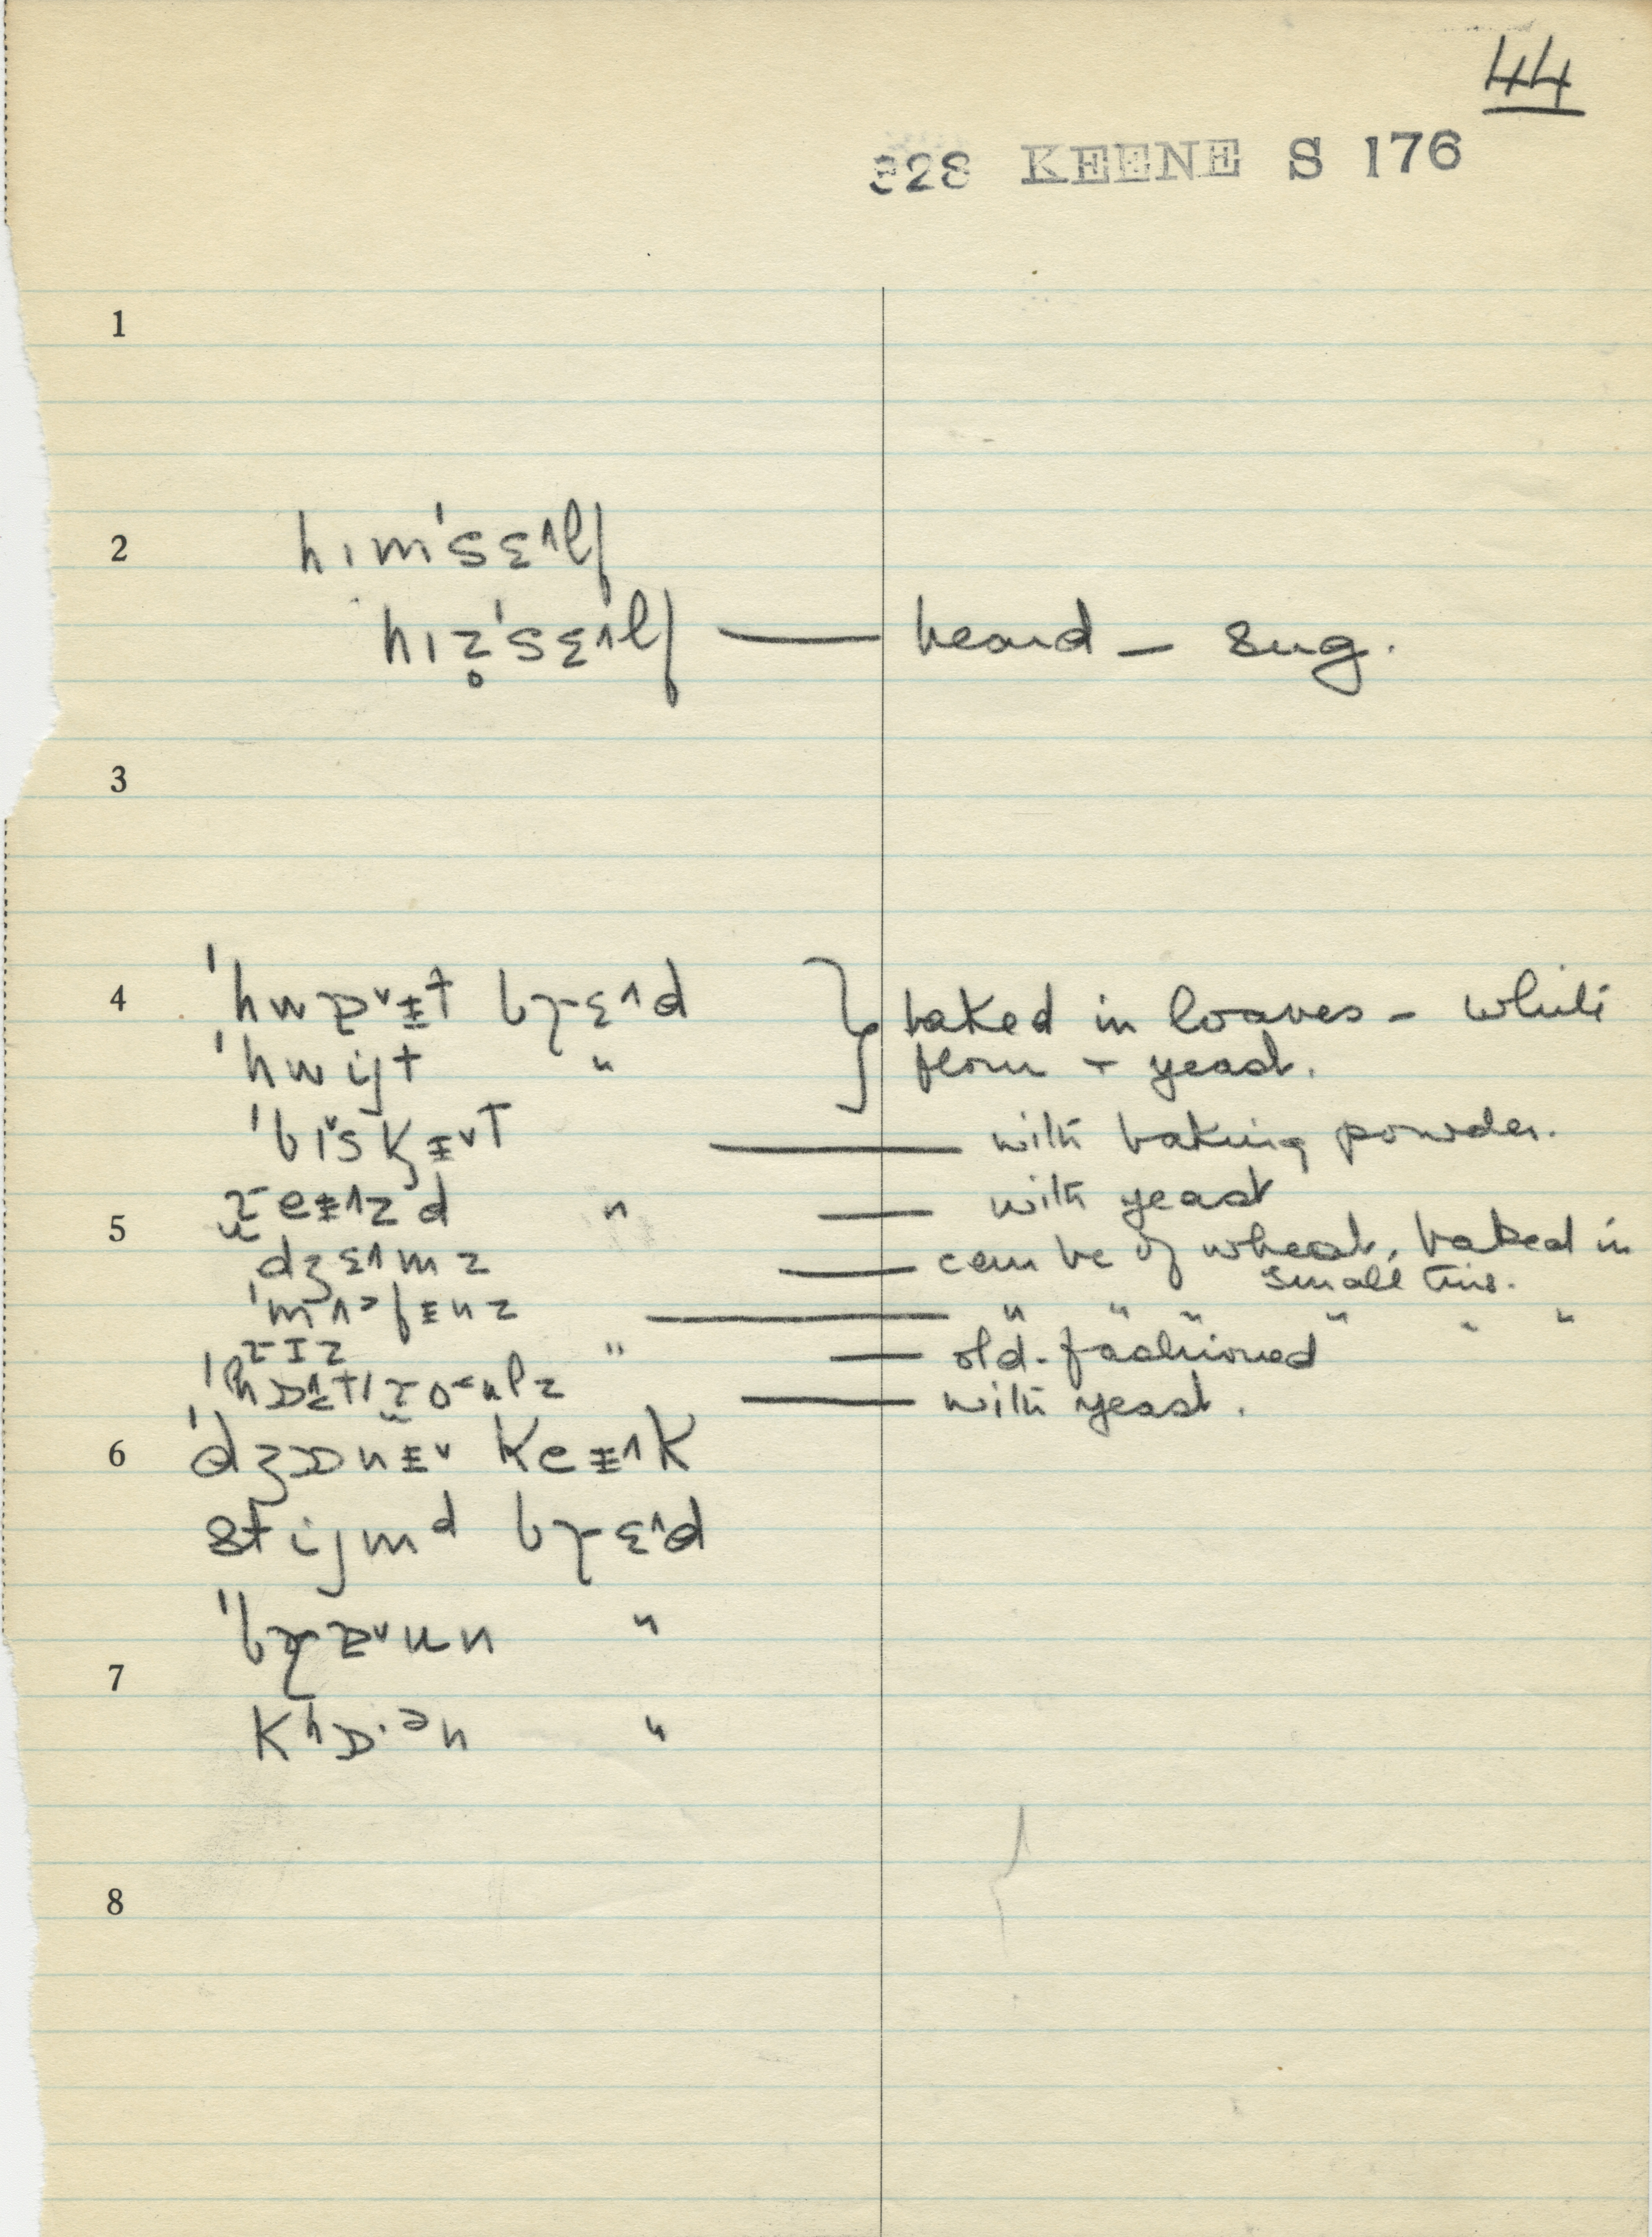 44
328 KEENE S 176
1
2 hɪm'sɛ^lf
hɪz̥'sɛ^lf — heard — sug.
3
4 'hwɒᵛɨt brɛ^d } baked in loaves - white
'hwijt " flour + yeast.
'bɪᵛskɨᵛt — with baking powder.
reɨ^zd " — with yeast
5
dʒɛ^mz — can be of wheat, baked in
small tins.
'mʌ^fɨnz — " " " " " "
rɪz " — old-fashioned
— with yeast.
6 'dʒɒnɨᵛ keɨ^k
stijmᵈ brɛ^d
'brɒᵛun "
7
kʰɒ·ᵊn "
8